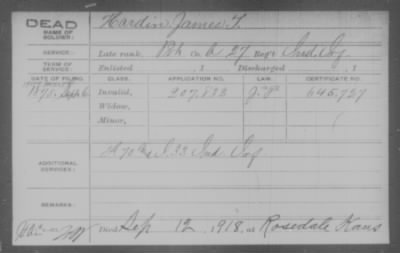 DEAD Hardin, James T.
NAME OF SOLDIER:
SERVICE: Late rank, Pvt Co. G 27 Reg't Ind Inf
TERM OF SERVICE: Enlisted , 1 Discharged , 1
DATE OF FILING. CLASS. APPLICATION NO. LAW. CERTIFICATE NO.
1875 Sept 6 Invalid, 207,833 645,727
Widow,
Minor,
ADDITIONAL SERVICES: 70 33 Ind Inf
REMARKS:
Died Sep 12, 1918, at Rosedale Kans